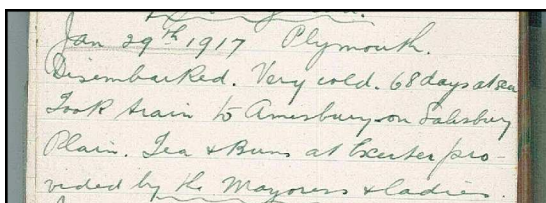 Jan 29th 1917 Plymouth.
Disembarked. Very cold. 68 days at sea
Took train to Amesbury on Salisbury
Plain. Tea & Buns at Exeter pro-
vided by the Mayoress & Ladies.